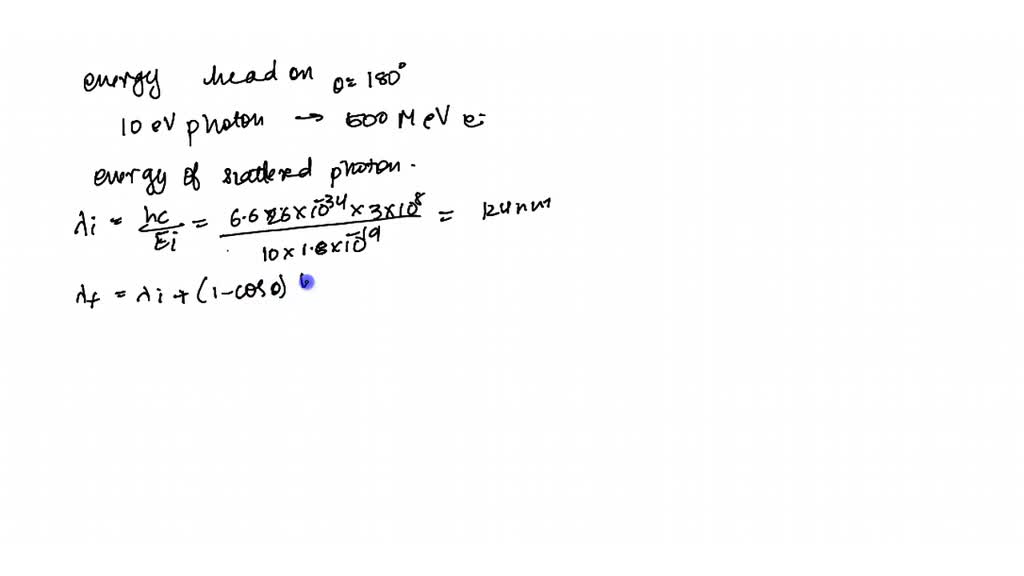 energy head on θ = 180°
10 eV photon → 500 MeV e⁻
energy of scattered photon.
λi = hc/Ei = 6.626×10^-34 × 3×10^8 / 10×1.6×10^-19 = 124nm
λf = λi + (1-cosθ)